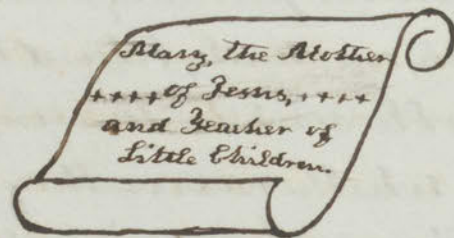 Mary, the Mother
++++ of Jesus, ++++
and Teacher of
Little Children.